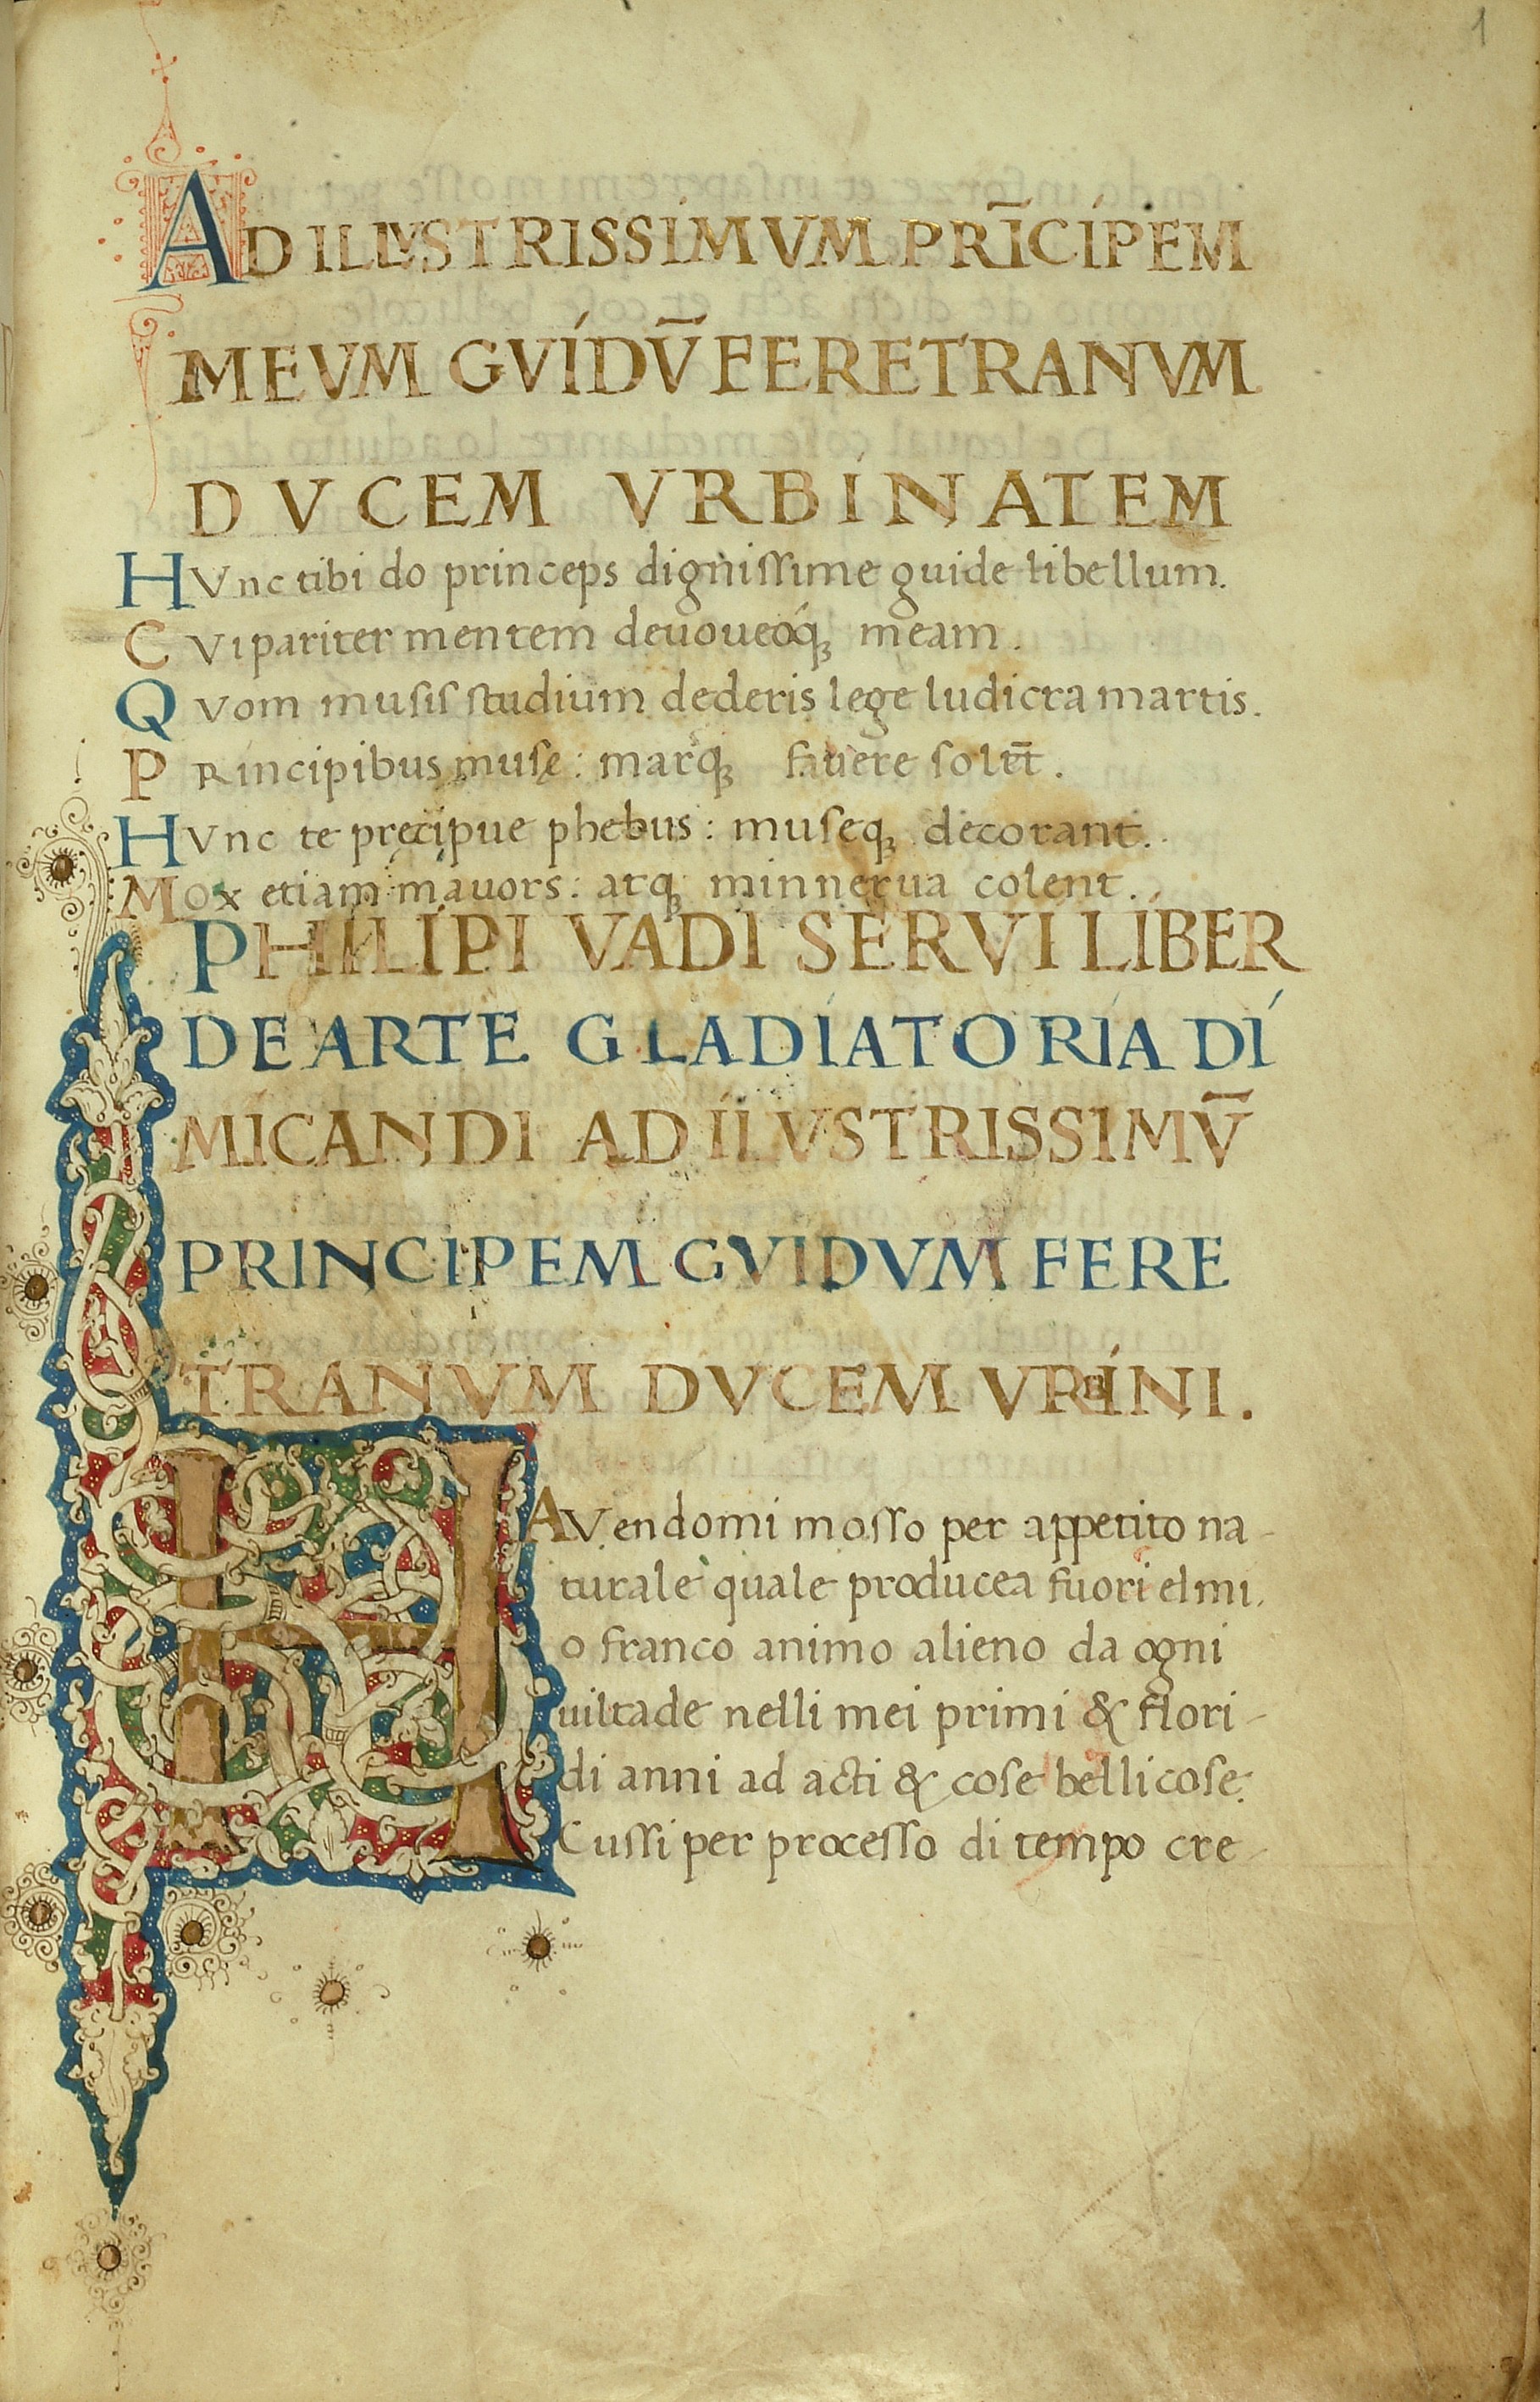 1
AD ILLVSTRISSIMVM PRĪCIPEM
MEVM GVIDV̄ FERETRANVM
DVCEM VRBINATEM
HVnc tibi do princeps dignissime guide libellum.
CVi pariter mentem deuoueoq́ꝫ meam.
QVom musis studium dederis lege ludicra martis.
PRincipibus musę: marq̉ꝫ fauere solēt.
HVnc te precipue phebus: museqꝫ decorant.
MOx etiam mauors: atqꝫ minnerua colent.
PHILIPI VADI SERVI LIBER
DE ARTE GLADIATORIA DI
MICANDI AD ILVSTRISSIMV̄
PRINCIPEM GVIDVM FERE
TRANVM DVCEM VRBINI.
HAVendomi mosso per appetito na-
turale quale producea fuori el mi,
o franco animo alieno da ogni
uiltade nelli mei primi & flori-
di anni ad acti & cose bellicose.
Cussi per processo di tempo cre-